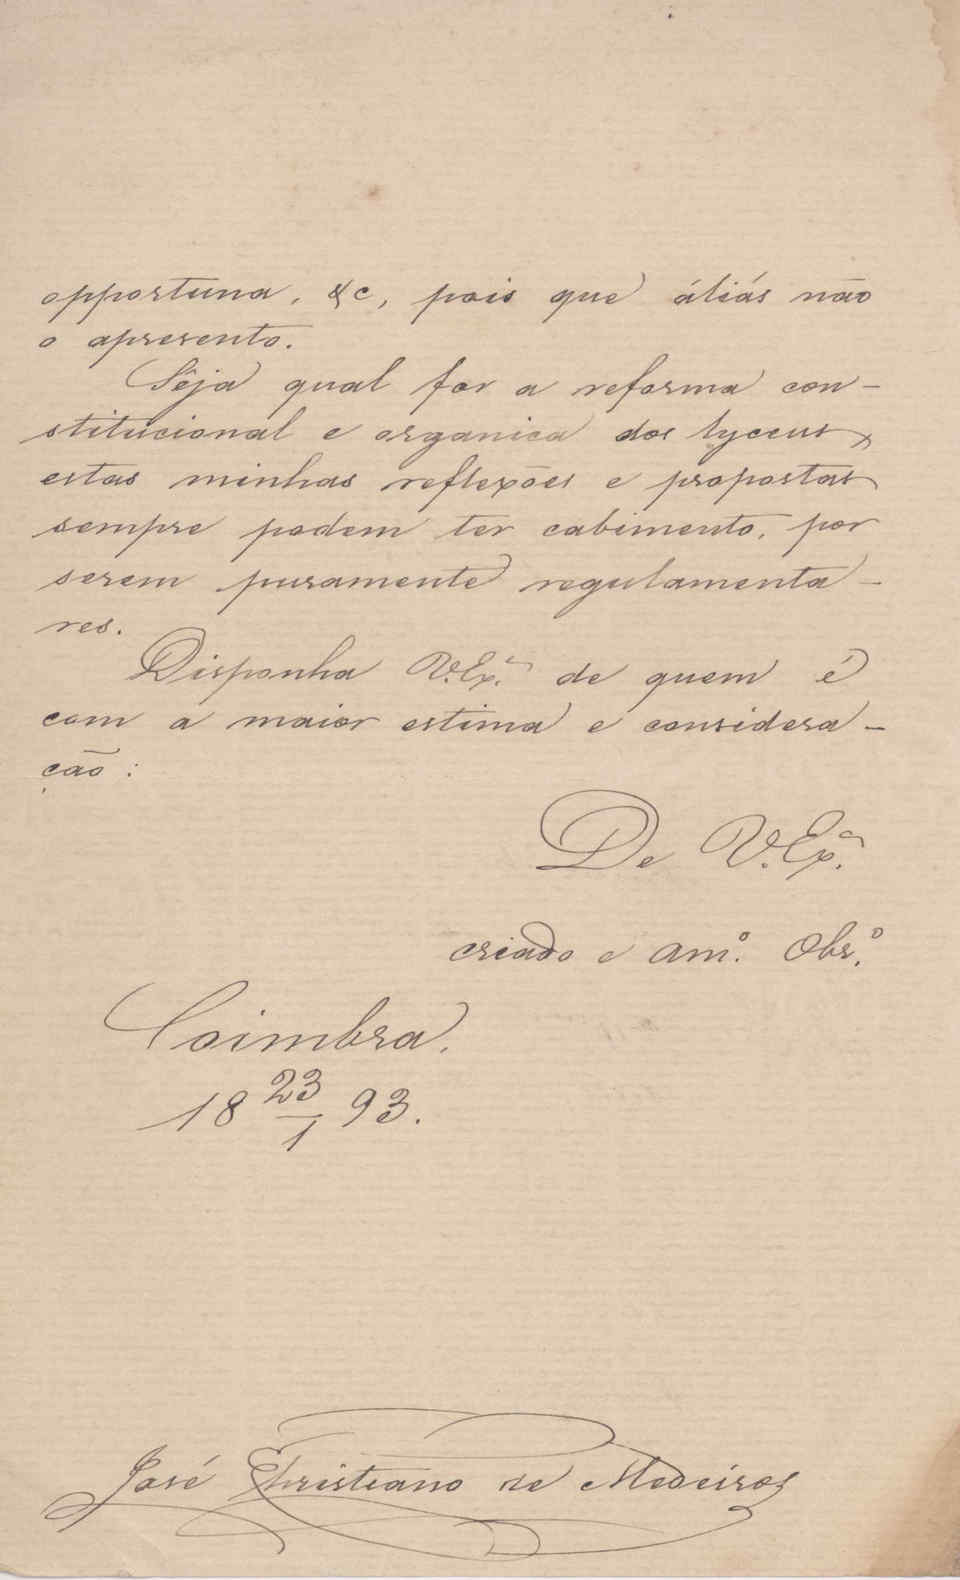 opportuna, &c, pois que áliás não
o apresento.
Sêja qual for a reforma con-
stitucional e organica dos lyceus,
estas minhas reflexões e propostas
sempre podem ter cabimento, por
serem puramente regulamenta-
res.
Disponha V. Ex.ª de quem é
com a maior estima e considera-
ção:
De V. Ex.ª
criado e am.º Obr.º
Coimbra.
18 23/1 93.
José Christiano de Medeiros